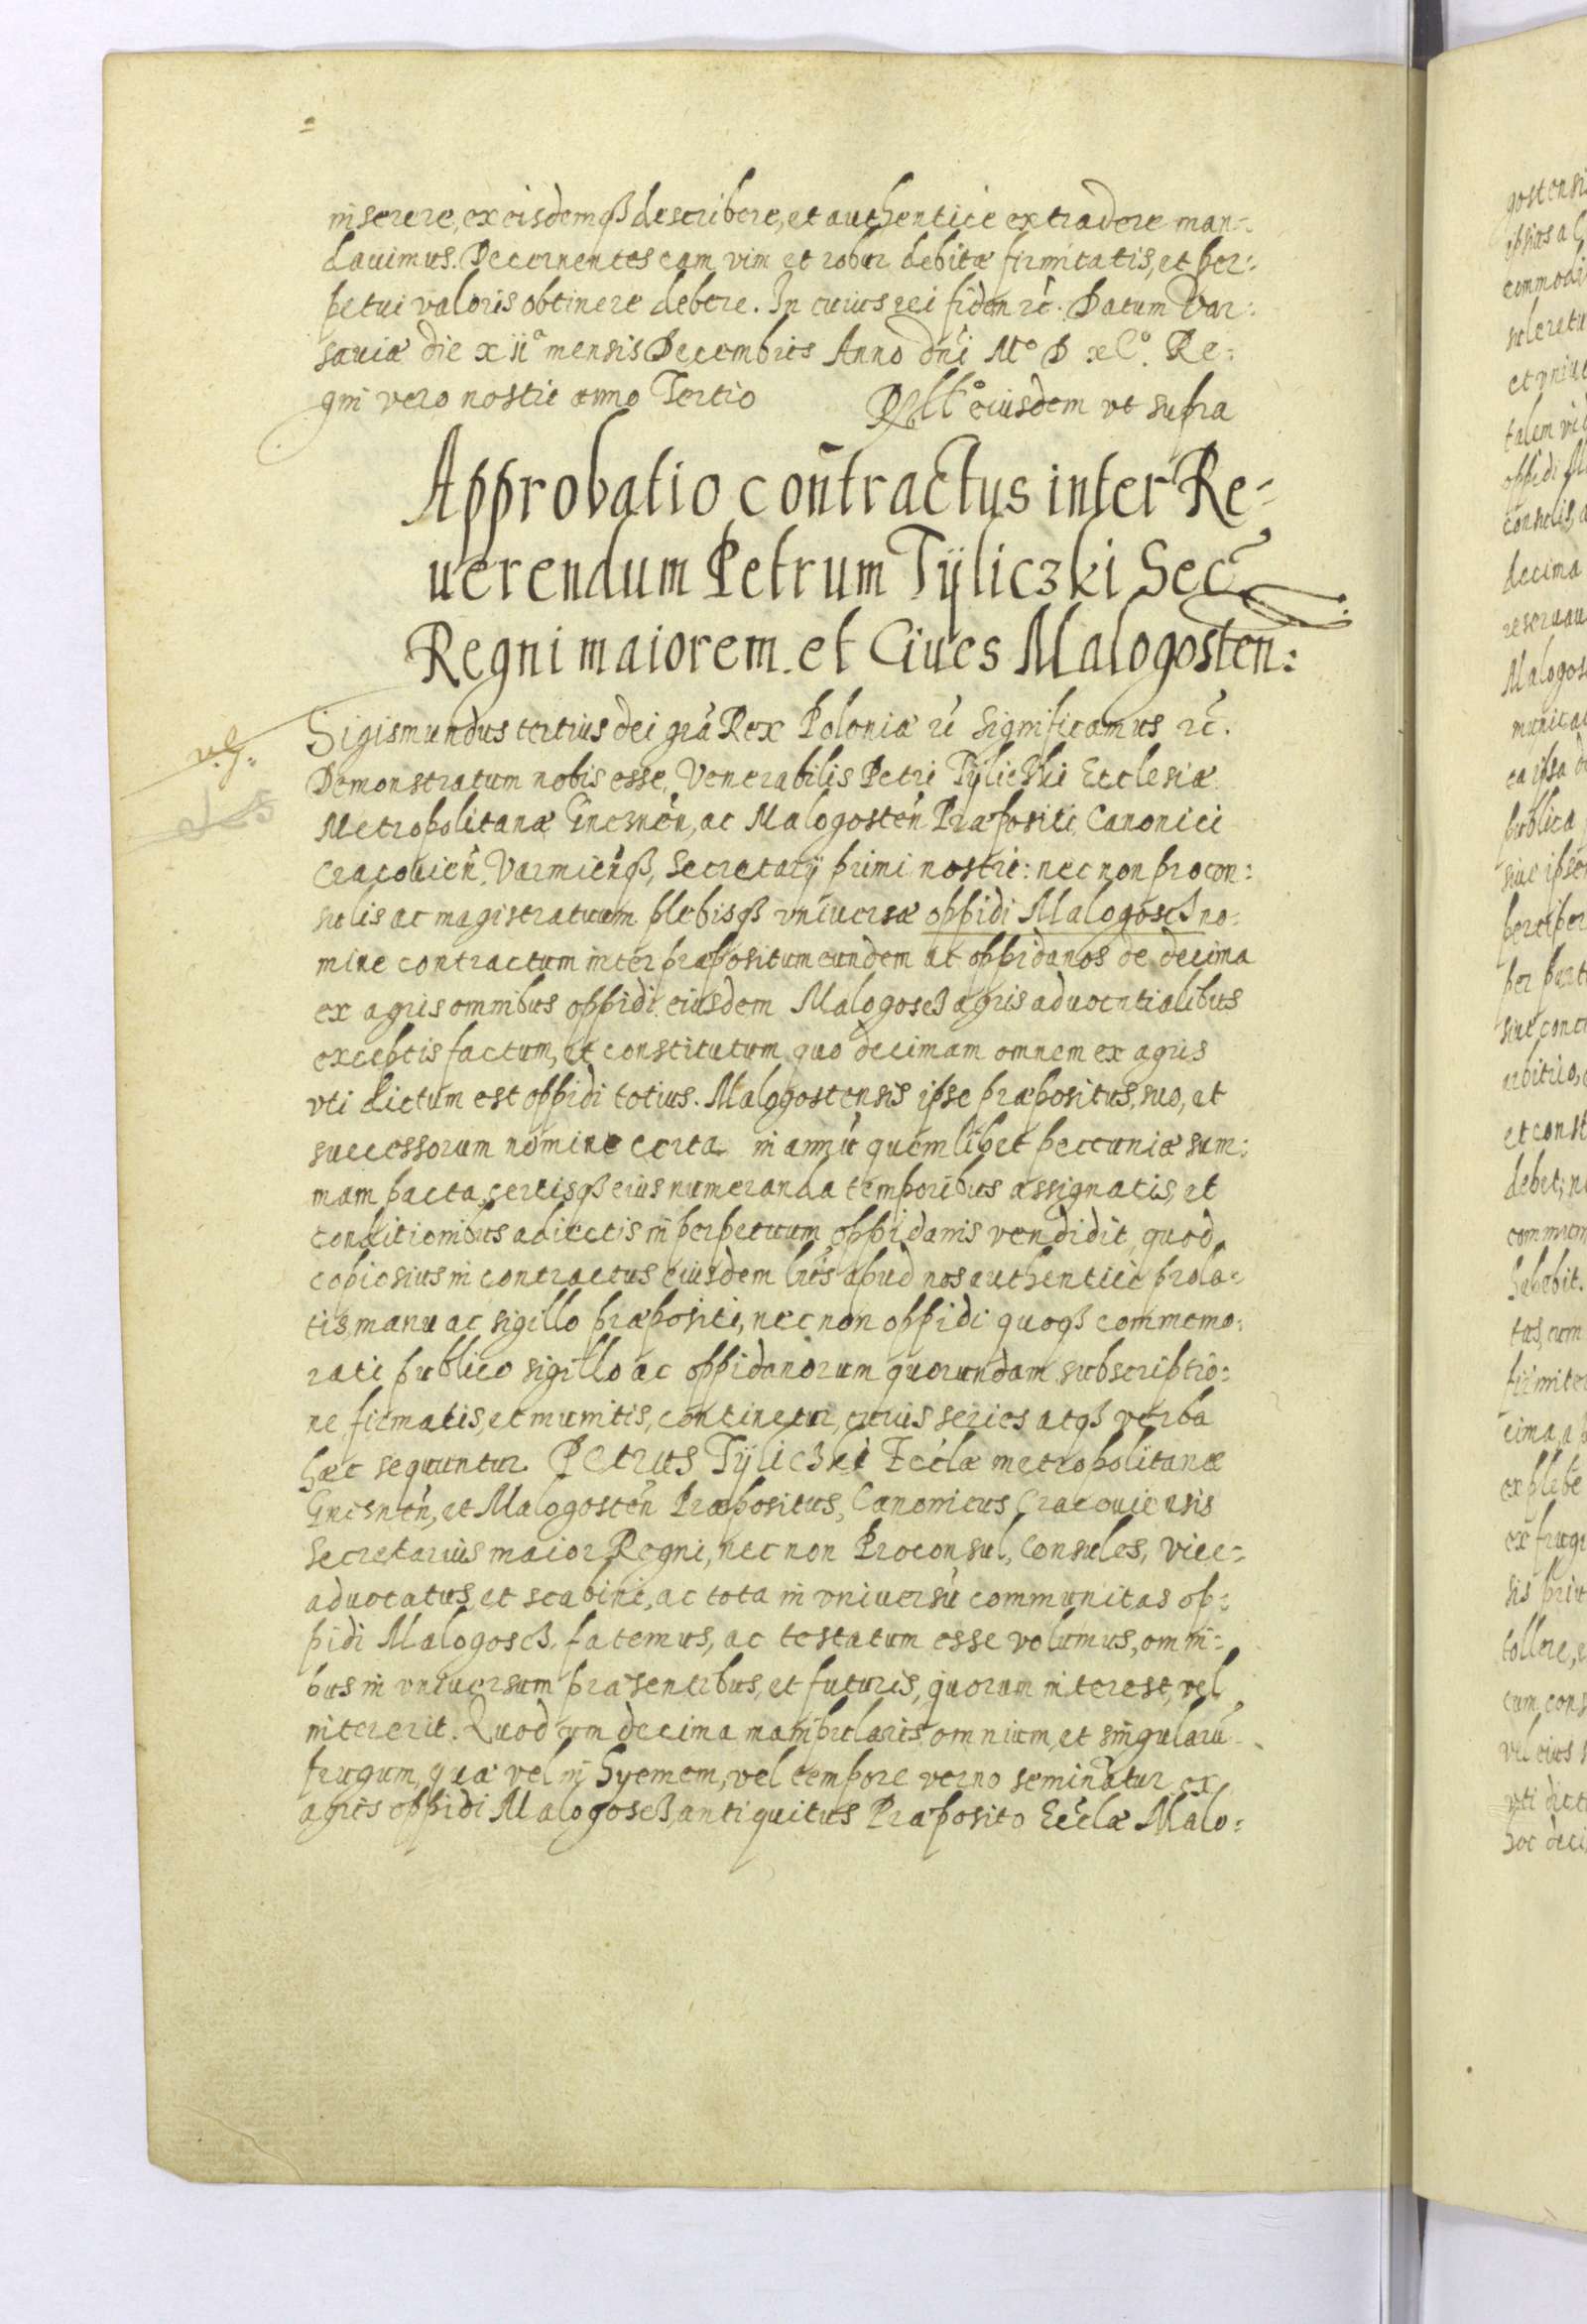 inserere, ex eisdemqȝ describere, et authentice extradere man-
dauimus. Decernentes eam vim et robur debitæ firmitatis, et per:
petui valoris obtinere debere. In cuius rei fidem rc̃. Datum Var:
sauiæ die xiiª mensis Decembris Anno dñi Mº D xCº. Re:
gni vero nostri anno Tertio
Rellº eiusdem vt supra
Approbatio coñtractus inter Re-
uerendum Petrum Tÿliczki Sec
Regni maiorem et Ciues Malogosten:
Sigismundus tertius dei grã Rex Poloniæ rc̃ significamus rc̃.
Demonstratum nobis esse, Venerabilis Petri Tÿliczki Ecclesiæ
Metropolitanæ Gneznen̄, ac Malogosten̄ Præpositi, Canonici
Cracouien̄, Varmien̄qȝ, Secretarÿ primi nostri: nec non procon:
sulis ac magistratuum plebisqȝ vniuersæ oppidi Malogoscz no:
mine contractum inter præpositum eundem ac oppidanos de decima
ex agris omnibus oppidi eiusdem Malogoscz agris aduocatialibus
exceptis factum, et constitutum quo decimam omnem ex agris
vti dictum est oppidi totius. Malogostensis ipse præpositus, suo, et
successorum nomine certa in annū quemlibet peccuniæ sum:
mam pacta, certisqȝ eius numeranda temporibus assignatis, et
conditionibus adiectis in perpetuum oppidanis vendidit, quod
copiosius in contractus eiusdem lr̃is apud nos authentice prola-
tis manu ac sigillo præpositi, nec non oppidi quoqȝ commemo:
rati publico sigillo ac oppidanorum quorundam subscriptio:
ne firmatis, et munitis, continetur, cuius series atqȝ verba
hæc sequuntur. Petrus Tÿliczki Ecclæ metropolitanæ
Gnesnen̄, et Malogosten̄ Præpositus, Canonicus Cracouiensis
Secretarius maior Regni, nec non Proconsul, Consules, Vice-
aduocatus, et scabini, ac tota in vniuersū communitas op:
pidi Malogoscz. fatemus, ac testatum esse volumus, omni:
bus in vniuersum præsentibus, et futuris, quorum interest, vel
intererit. Quod cum decima manipularis omnium, et singularū
frugum, quæ vel in hyemem, vel tempore verno seminatur ex
agris oppidi Malogoscz, antiquitus Præposito Ecclæ Malo: